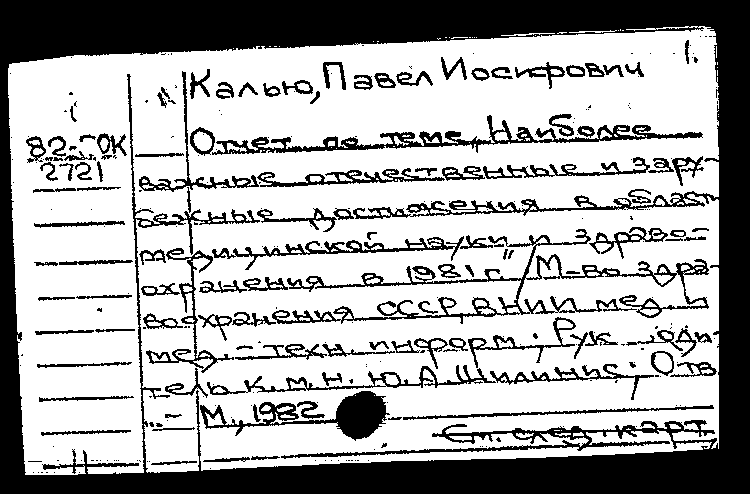 1.
Калью, Павел Иосифович
82-ГОК
2721
Отчет по теме „Наиболее
важные отечественные и зару-
бежные достижения в област
медицинской науки и здраво-
охранения в 1981 г." / М-во здра-
воохранения СССР, ВНИИ мед. и
мед.-техн. информ.; Рук
тель к.м.н. Ю.А. Шилинис; Отв
..- М., 1982
См. след. карт.